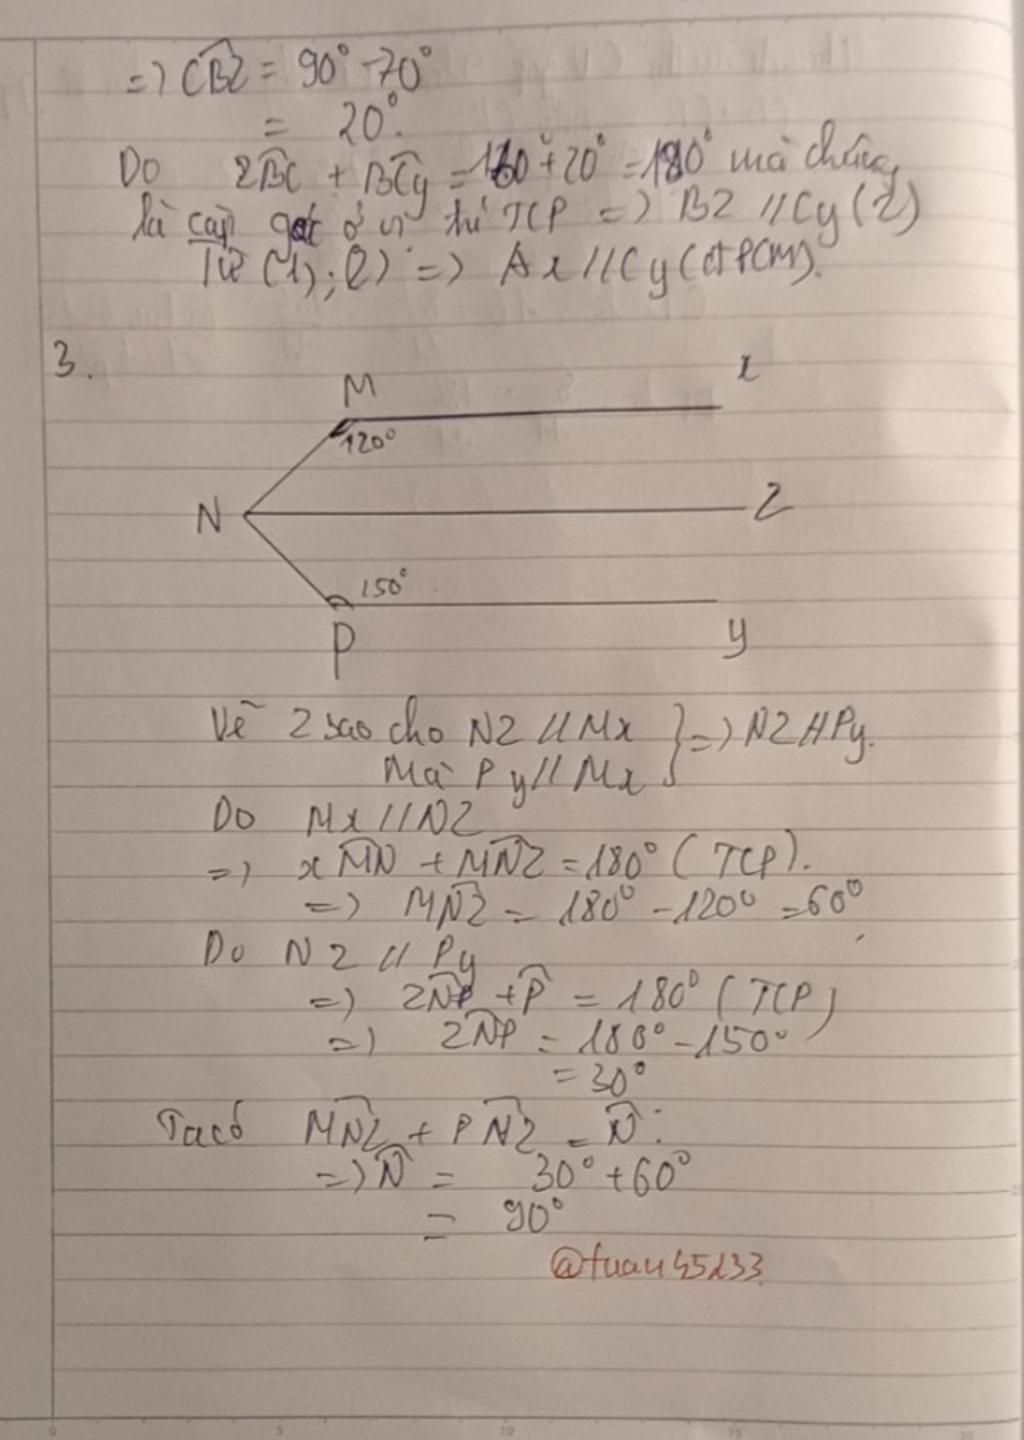 => CBz = 90° - 70°
= 20°.
Do zBC + BCy = 160° + 20° = 180° mà chúng
là cặp góc ở vị trí TCP => Bz // Cy (2)
Từ (1); (2) => Ax // Cy (đPCM).
3.
M x
120°
N z
150°
P y
Vẽ z sao cho Nz // Mx } => Nz // Py.
Mà Py // Mx
Do Mx // Nz
=> xMN + MNz = 180° (TCP).
=> MNz = 180° - 120° = 60°
Do Nz // Py
=> zNP + P = 180° (TCP)
=> zNP = 180° - 150°
= 30°
Ta có MNz + PNz = N :
=> N = 30° + 60°
= 90°
0 5 10 15 20